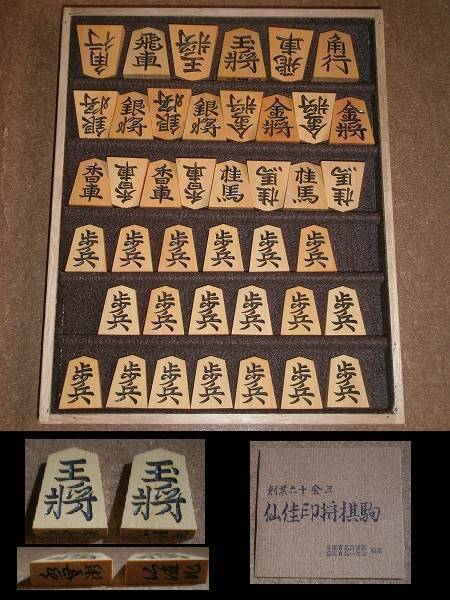 角行 飛車 玉將 王將 飛車 角行
銀将 銀将 銀将 銀将 金将 金将 金将 金将
香車 香車 香車 香車 桂馬 桂馬 桂馬 桂馬
歩兵 歩兵 歩兵 歩兵 歩兵 歩兵
歩兵 歩兵 歩兵 歩兵 歩兵 歩兵
歩兵 歩兵 歩兵 歩兵 歩兵 歩兵 歩兵
王將 玉將
創業六十余年
仙佳印将棋駒
全国有名百貨店